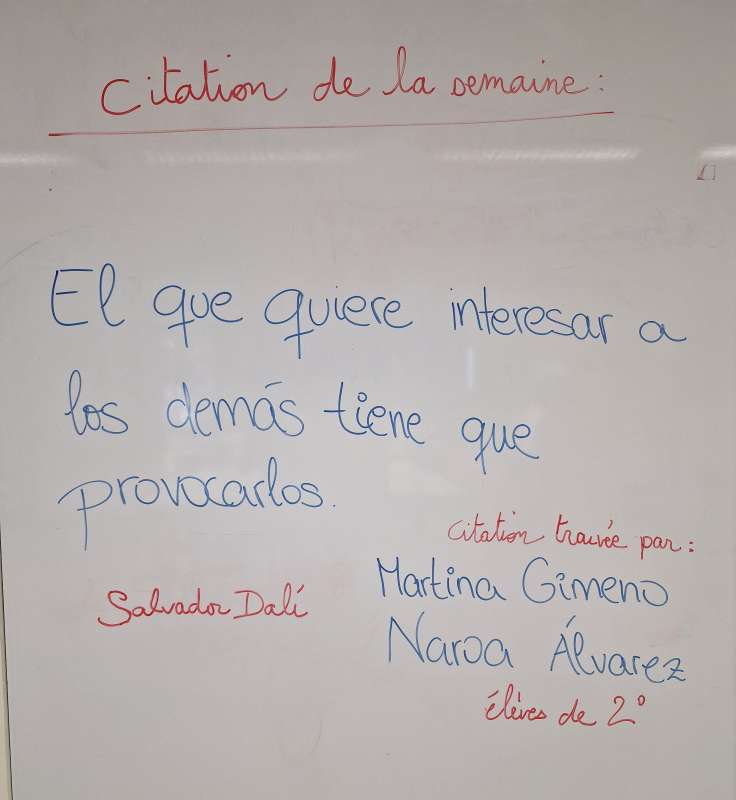 Citation de la semaine :
El que quiere interesar a
los demás tiene que
provocarlos.
Salvador Dalí
citation trouvée par :
Martina Gimeno
Naroa Álvarez
élèves de 2°